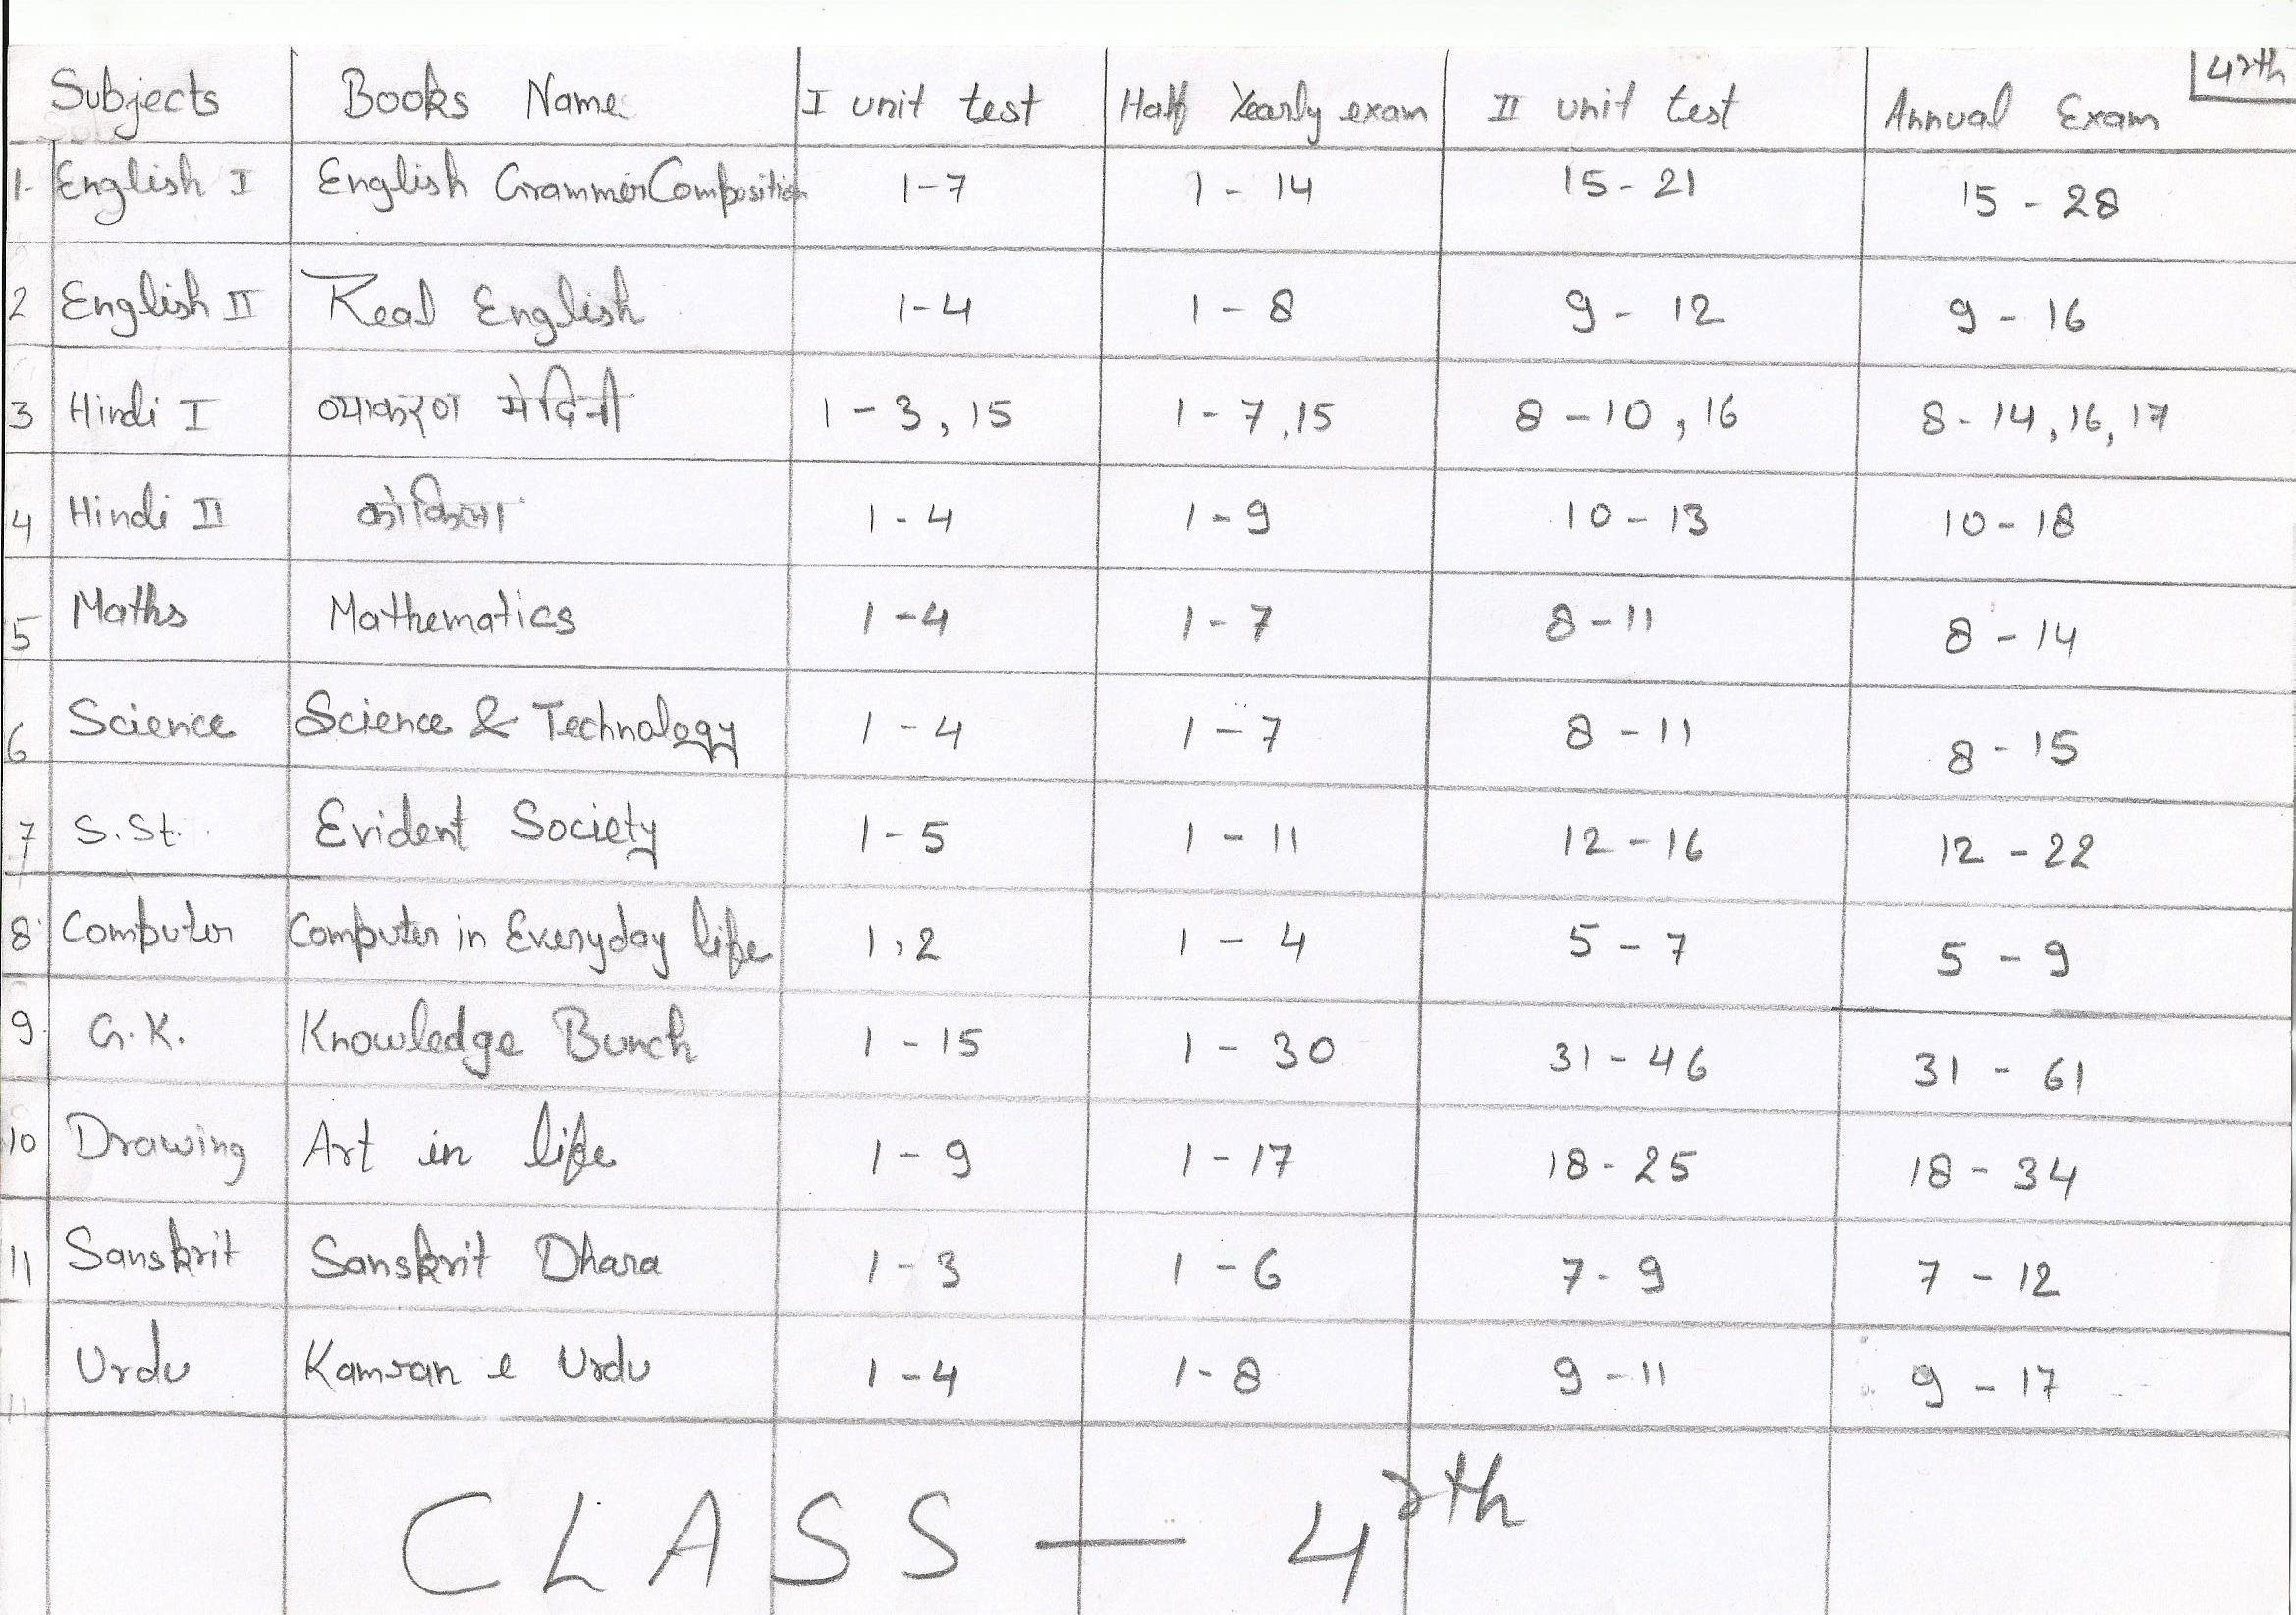 4rth
Subjects Books Name I unit test Half Yearly exam II unit test Annual Exam
1- English I English Grammer Composition 1-7 1 - 14 15 - 21 15 - 28
2 English II Real English 1-4 1 - 8 9 - 12 9 - 16
3 Hindi I व्याकरण मेदिनी 1 - 3, 15 1 - 7, 15 8 - 10, 16 8 - 14, 16, 17
4 Hindi II कोकिला 1 - 4 1 - 9 10 - 13 10 - 18
5 Maths Mathematics 1 - 4 1 - 7 8 - 11 8 - 14
6 Science Science & Technology 1 - 4 1 - 7 8 - 11 8 - 15
7 S.St. Evident Society 1 - 5 1 - 11 12 - 16 12 - 22
8 Computer Computer in Everyday life 1, 2 1 - 4 5 - 7 5 - 9
9. G.K. Knowledge Bunch 1 - 15 1 - 30 31 - 46 31 - 61
10 Drawing Art in life 1 - 9 1 - 17 18 - 25 18 - 34
11 Sanskrit Sanskrit Dhara 1 - 3 1 - 6 7 - 9 7 - 12
11 Urdu Kamran e Urdu 1 - 4 1 - 8 9 - 11 9 - 17
CLASS — 4rth